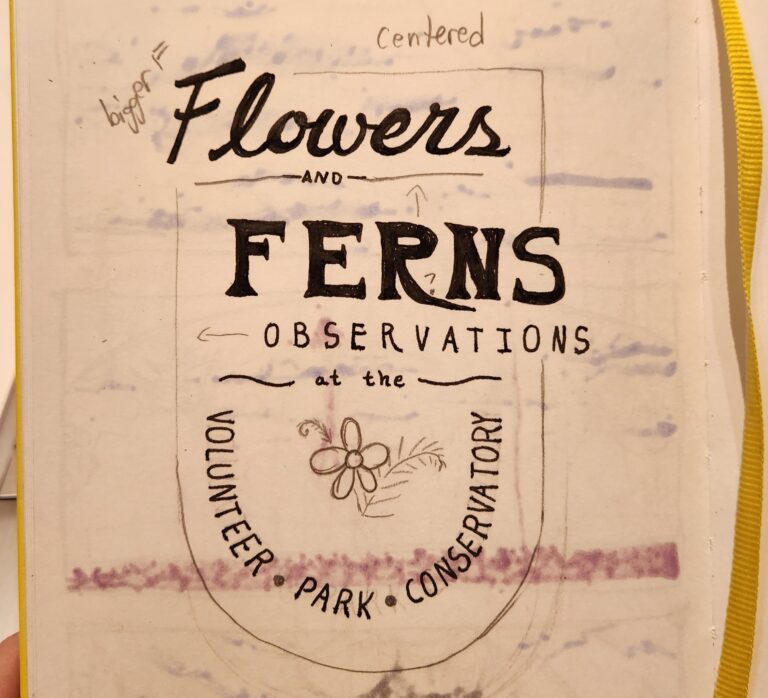 centered
bigger F
Flowers
AND
FERNS
?
OBSERVATIONS
at the
VOLUNTEER • PARK • CONSERVATORY